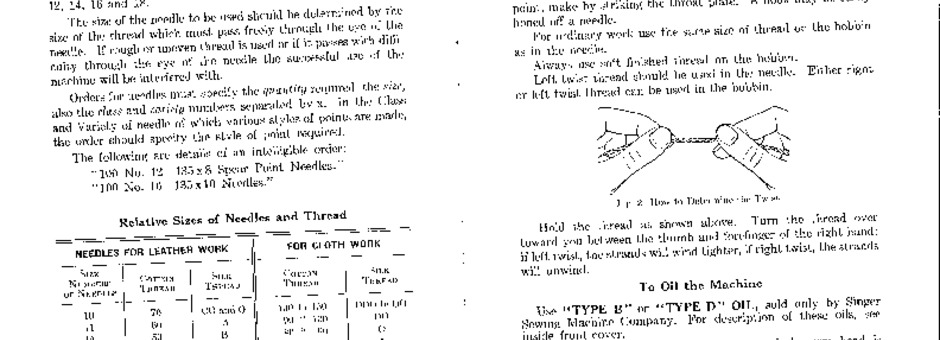 12, 14, 16 and 18.
The size of the needle to be used should be determined by the
size of the thread which must pass freely through the eye of the
needle. If rough or uneven thread is used or if it passes with diffi
culty through the eye of the needle the successful use of the
machine will be interfered with.
Orders for needles must specify the quantity required the size,
also the class and variety numbers separated by x. In the Class
and Variety of needle of which various styles of points are made,
the order should specify the style of point required.
The following are details of an intelligible order:
"100 No. 12 135 x 8 Spear Point Needles."
"100 No. 16 135 x 10 Needles."
Relative Sizes of Needles and Thread
NEEDLES FOR LEATHER WORK FOR CLOTH WORK
Size Numbers of Needles Cotton Thread Silk Thread Cotton Thread Silk Thread
10 70 OO and O
11 60 A OO
50 B O
point, make by striking the throat plate. A
honed off a needle.
For ordinary work use the same size of thread on the bobbin
as in the needle.
Always use soft finished thread on the bobbin.
Left twist thread should be used in the needle. Either right
or left twist thread can be used in the bobbin.
Fig. 2. How to Determine the Twist
Hold the thread as shown above. Turn the thread over
toward you between the thumb and forefinger of the right hand;
if left twist, the strands will wind tighter, if right twist, the strands
will unwind.
To Oil the Machine
Use "TYPE B" or "TYPE D" OIL, sold only by Singer
Sewing Machine Company. For description of these oils, see
inside front cover.